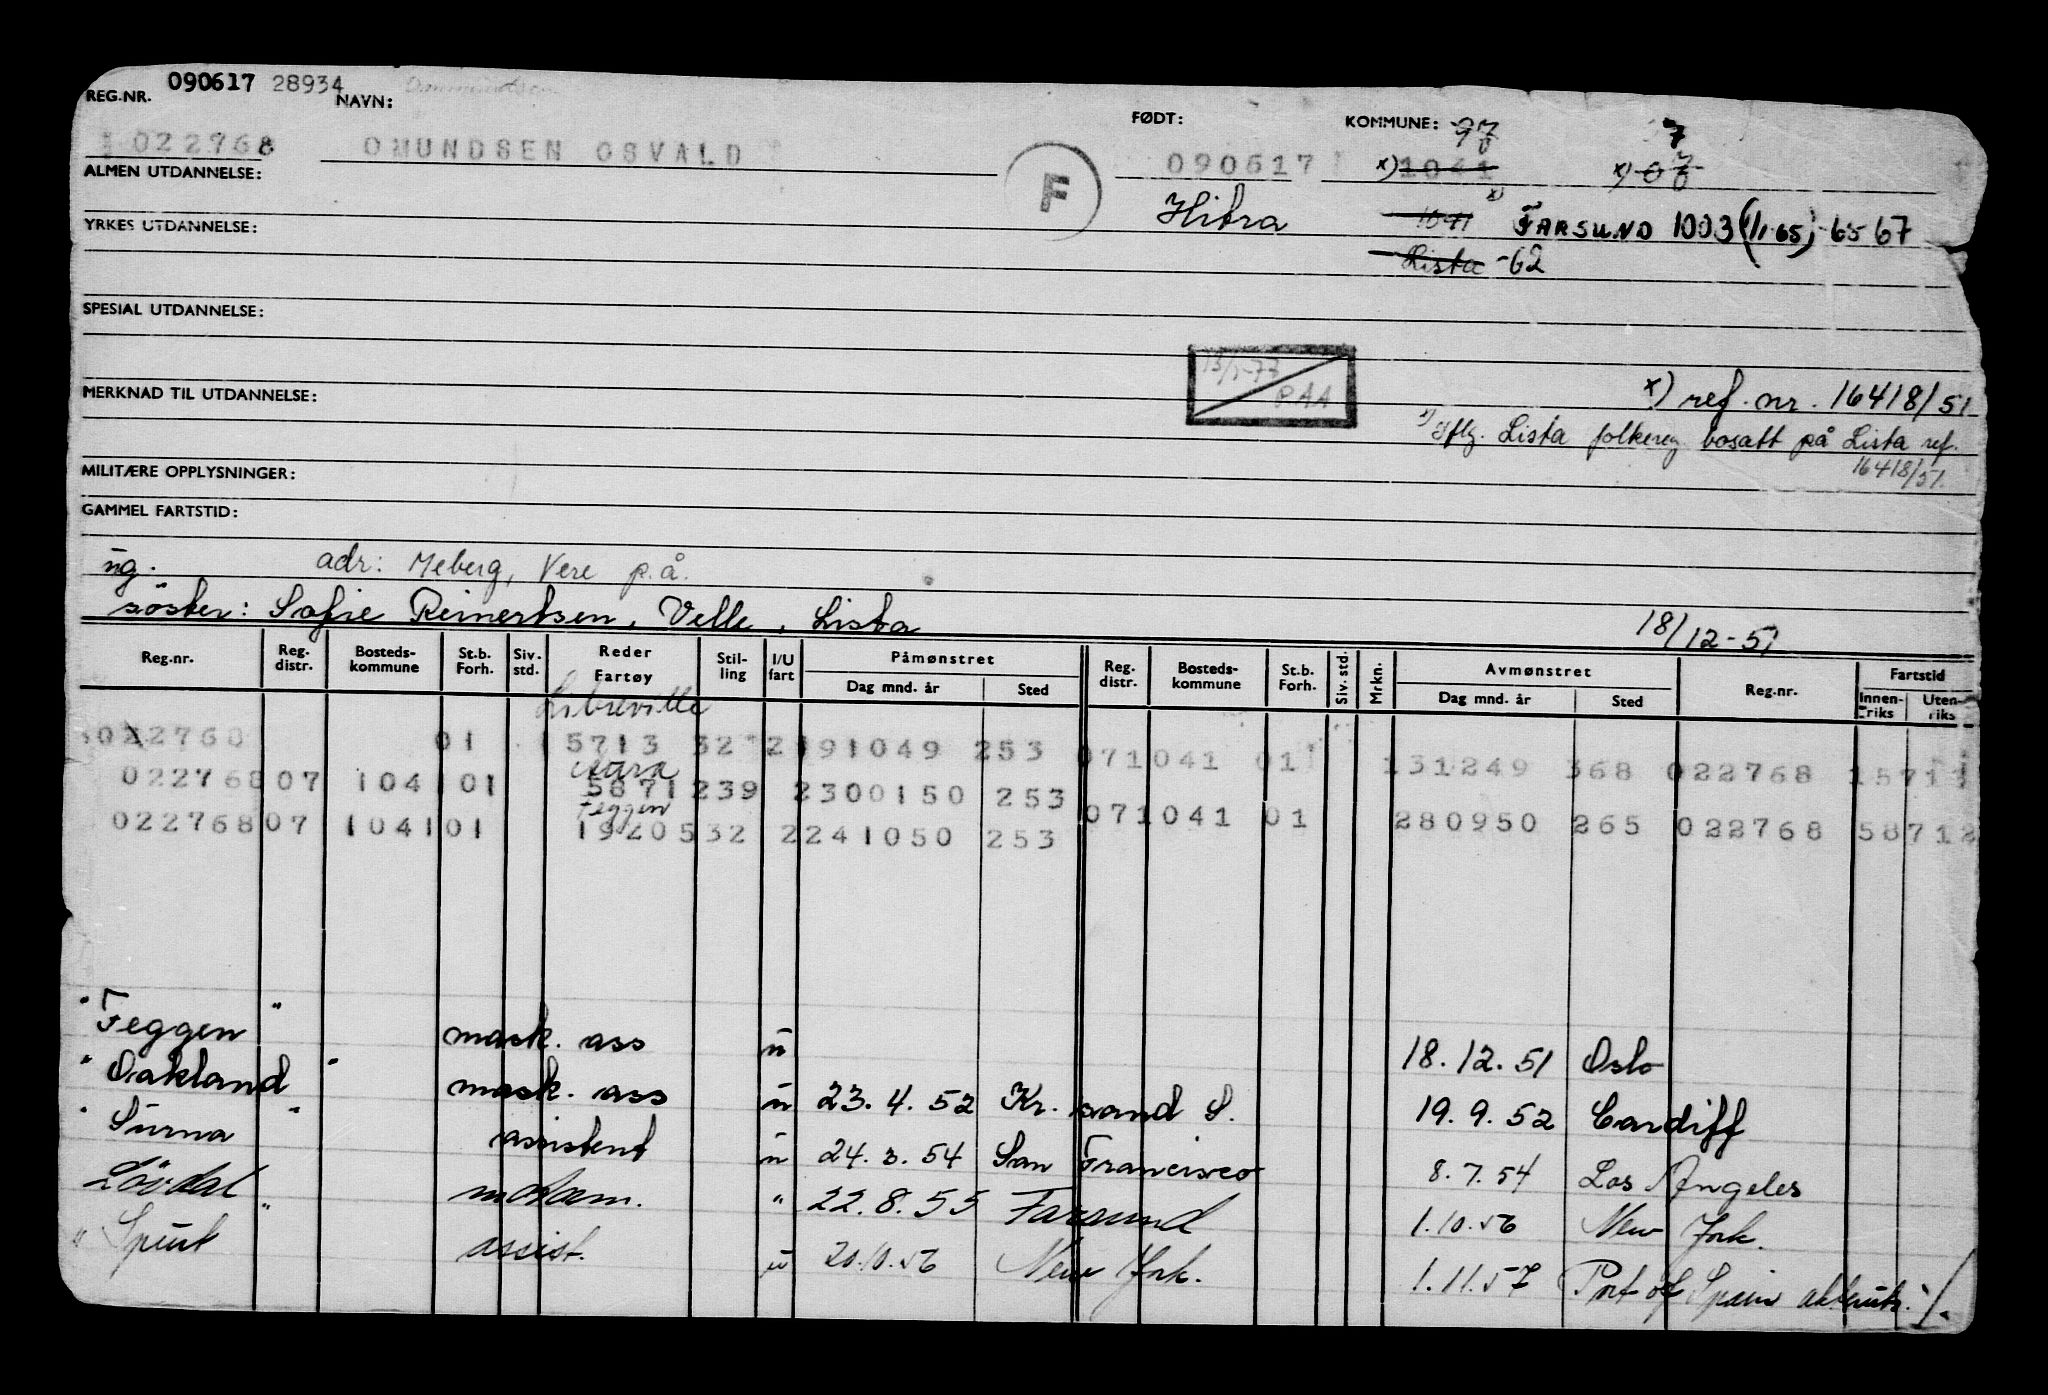 090617 28934
REG.NR. NAVN: FØDT: KOMMUNE: 97 7
022768 OMUNDSEN OSVALD 090617 x) 1041 x) 07
F
ALMEN UTDANNELSE:
Hitra 1041 x) FARSUND 1003 (1/1-65) -65 67
YRKES UTDANNELSE:
Lista -62
SPESIAL UTDANNELSE:
13/1-73
PAA
MERKNAD TIL UTDANNELSE:
x) ref. nr. 16418/51
Iflg. Lista folkereg bosatt på Lista ref.
16418/51.
MILITÆRE OPPLYSNINGER:
GAMMEL FARTSTID:
ug. adr: Meberg, Vere p.å.
söster: Sofie Reinertsen, Velle, Lista 18/12-51
Reg.nr. Reg. distr. Bosteds-kommune St.b. Forh. Siv. std. Reder Fartøy Stil-ling I/U fart Påmønstret Dag mnd. år Sted Reg. distr. Bosteds-kommune St.b. Forh. Siv. std. Mrkn. Avmønstret Dag mnd. år Sted Reg.nr. Fartstid Innen-riks Uten-riks
Libreville
022768 01 5713 32 2 191049 253 071041 01 131249 368 022768 15711
022768 07 1041 01 5871 239 2 300150 253 071041 01 280950 265 022768 58712
Feggen
022768 07 1041 01 19205 32 2 241050 253
" Feggen " mask. ass u 18.12.51 Oslo
" Oakland " mask. ass u 23.4.52 Kr. sand S. 19.9.52 Cardiff
" Surna " assistent u 24.3.54 San Francisco 8.7.54 Los Angeles
Lövdal " motorm. " 22.8.55 Farsund 1.10.56 New York.
" Spurt assist. u 20.10.56 New York. 1.11.57 Port of Spain